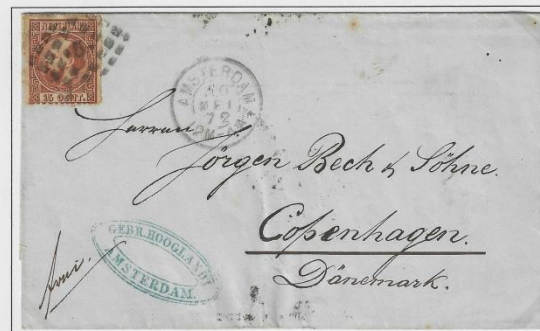 15 CENT.
AMSTERDAM
MEI
72
Herren
Jörgen Bech & Söhne.
Copenhagen.
Dänemark.
GEBR. HOOGLANDT
AMSTERDAM.